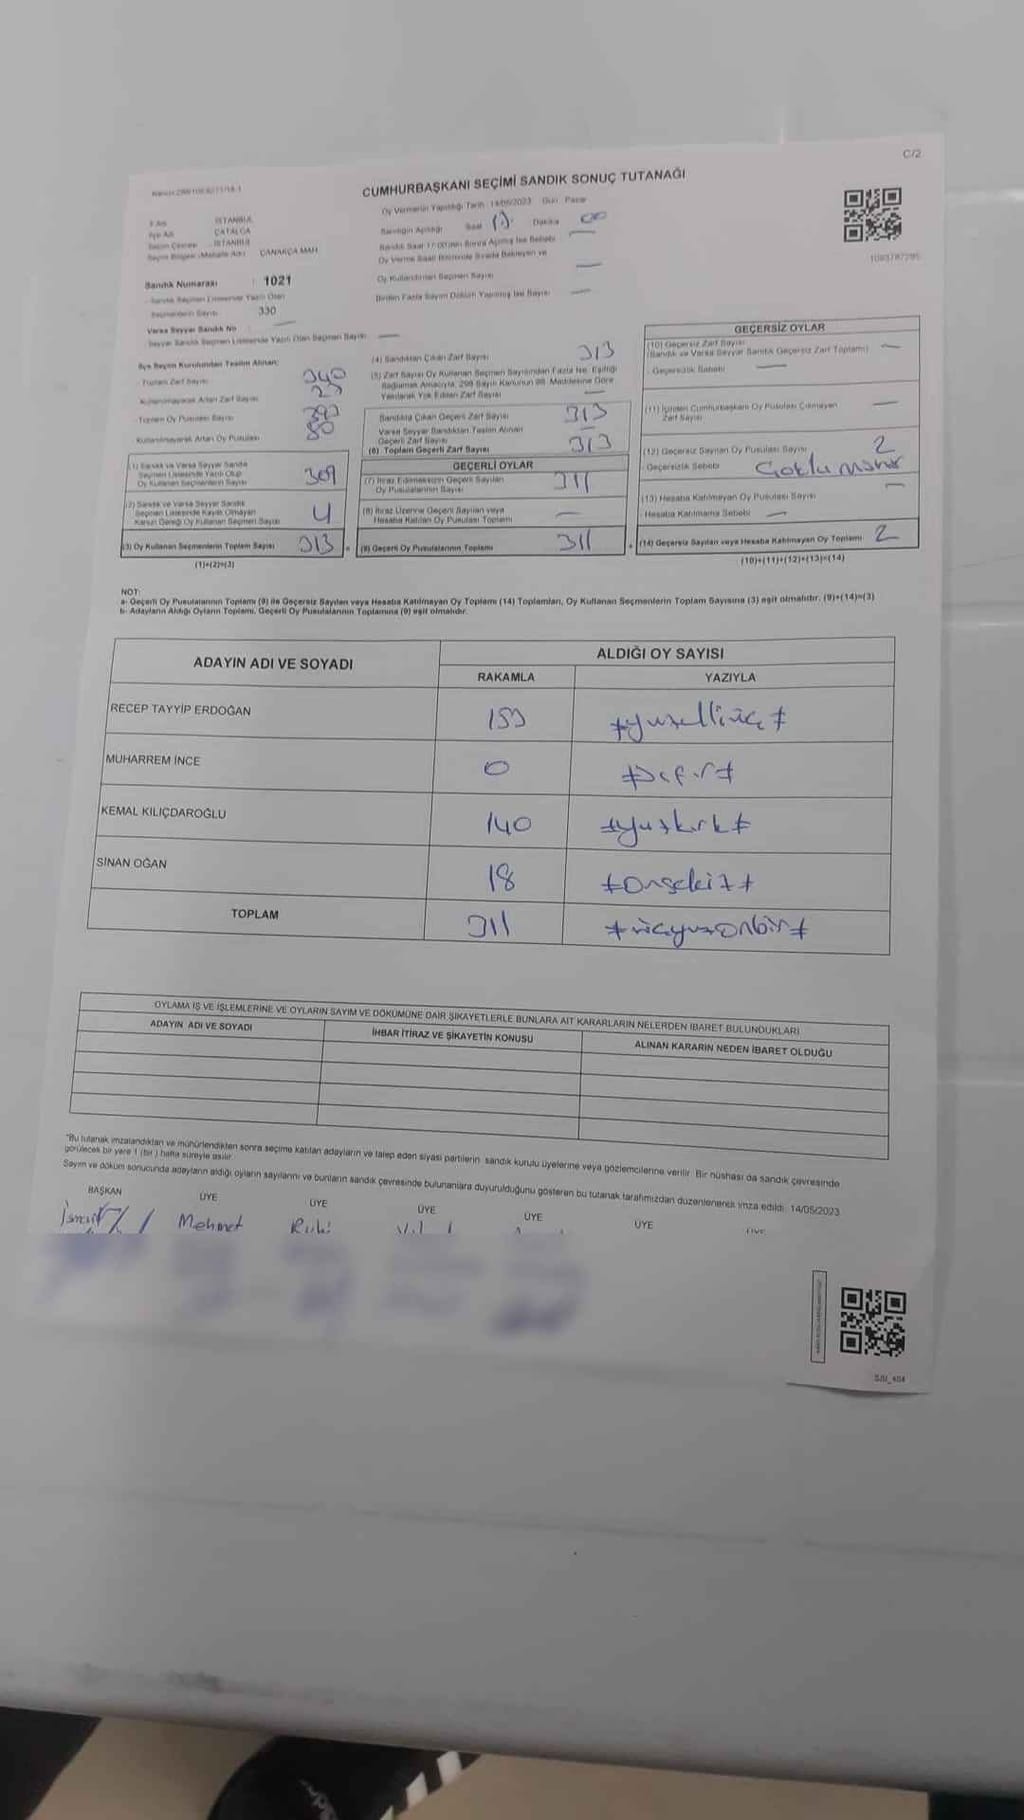 C/2
CUMHURBAŞKANI SEÇİMİ SANDIK SONUÇ TUTANAĞI
Oy Vermenin Yapıldığı Tarih : 14/05/2023 Gün : Pazar
Sandığın Açıldığı Saat Dakika 00
İSTANBUL
ÇATALCA
İSTANBUL
ÇANAKÇA MAH.
Sandık Saat 17:00'den Sonra Açılmış İse Sebebi
Oy Verme Saati Bitiminde Sırada Bekleyen ve
Oy Kullandırılan Seçmen Sayısı
Birden Fazla Sayım Döküm Yapılmış İse Sayısı
Sandık Numarası : 1021
Sandık Seçmen Listesinde Yazılı Olan
Seçmenlerin Sayısı 330
Varsa Seyyar Sandık No
Seyyar Sandık Seçmen Listesinde Yazılı Olan Seçmen Sayısı
İlçe Seçim Kurulundan Teslim Alınan:
Toplam Zarf Sayısı 340
Kullanılmayarak Artan Zarf Sayısı
Toplam Oy Pusulası Sayısı
Kullanılmayarak Artan Oy Pusulası 80
(1) Sandık ve Varsa Seyyar Sandık
Seçmen Listesinde Yazılı Olup
Oy Kullanan Seçmenlerin Sayısı 309
(2) Sandık ve Varsa Seyyar Sandık
Seçmen Listesinde Kayıtlı Olmayan
Kanun Gereği Oy Kullanan Seçmen Sayısı 4
(3) Oy Kullanan Seçmenlerin Toplam Sayısı 313
(1)+(2)=(3)
(4) Sandıktan Çıkan Zarf Sayısı 313
(5) Zarf Sayısı Oy Kullanan Seçmen Sayısından Fazla İse, Eşitliği
Sağlamak Amacıyla, 298 Sayılı Kanunun 98. Maddesine Göre
Yakılarak Yok Edilen Zarf Sayısı
Sandıkta Çıkan Geçerli Zarf Sayısı 313
Varsa Seyyar Sandıktan Teslim Alınan
Geçerli Zarf Sayısı
(6) Toplam Geçerli Zarf Sayısı 313
GEÇERLİ OYLAR
(7) İtiraz Edilmeksizin Geçerli Sayılan
Oy Pusulalarının Sayısı 311
(8) İtiraz Üzerine Geçerli Sayılan veya
Hesaba Katılan Oy Pusulası Toplamı
(9) Geçerli Oy Pusulalarının Toplamı 311
GEÇERSİZ OYLAR
(10) Geçersiz Zarf Sayısı
(Sandık ve Varsa Seyyar Sandık Geçersiz Zarf Toplamı)
Geçersizlik Sebebi
(11) İçinden Cumhurbaşkanı Oy Pusulası Çıkmayan
Zarf Sayısı
(12) Geçersiz Sayılan Oy Pusulası Sayısı 2
Geçersizlik Sebebi
(13) Hesaba Katılmayan Oy Pusulası Sayısı
Hesaba Katılmama Sebebi
(14) Geçersiz Sayılan veya Hesaba Katılmayan Oy Toplamı 2
(10)+(11)+(12)+(13)=(14)
NOT:
a- Geçerli Oy Pusulalarının Toplamı (9) ile Geçersiz Sayılan veya Hesaba Katılmayan Oy Toplamı (14) Toplamları, Oy Kullanan Seçmenlerin Toplam Sayısına (3) eşit olmalıdır. (9)+(14)=(3)
b- Adayların Aldığı Oyların Toplamı, Geçerli Oy Pusulalarının Toplamına (9) eşit olmalıdır.
ADAYIN ADI VE SOYADI ALDIĞI OY SAYISI
RAKAMLA YAZIYLA
RECEP TAYYİP ERDOĞAN 153 #yüzelliüç#
MUHARREM İNCE 0 #sıfır#
KEMAL KILIÇDAROĞLU 140 #yüzkırk#
SİNAN OĞAN 18 #onsekiz#
TOPLAM 311 #üçyüzonbir#
OYLAMA İŞ VE İŞLEMLERİNE VE OYLARIN SAYIM VE DÖKÜMÜNE DAİR ŞİKAYETLERLE BUNLARA AİT KARARLARIN NELERDEN İBARET BULUNDUKLARI
ADAYIN ADI VE SOYADI İHBAR İTİRAZ VE ŞİKAYETİN KONUSU ALINAN KARARIN NEDEN İBARET OLDUĞU
"Bu tutanak imzalandıktan ve mühürlendikten sonra seçime katılan adayların ve talep eden siyasi partilerin sandık kurulu üyelerine veya gözlemcilerine verilir. Bir nüshası da sandık çevresinde
görülecek bir yere 1 (bir) hafta süreyle asılır.
Sayım ve döküm sonucunda adayların aldığı oyların sayılarını ve bunların sandık çevresinde bulunanlara duyurulduğunu gösteren bu tutanak tarafımızdan düzenlenerek imza edildi. 14/05/2023
BAŞKAN ÜYE ÜYE ÜYE ÜYE ÜYE ÜYE
İsmail Mehmet